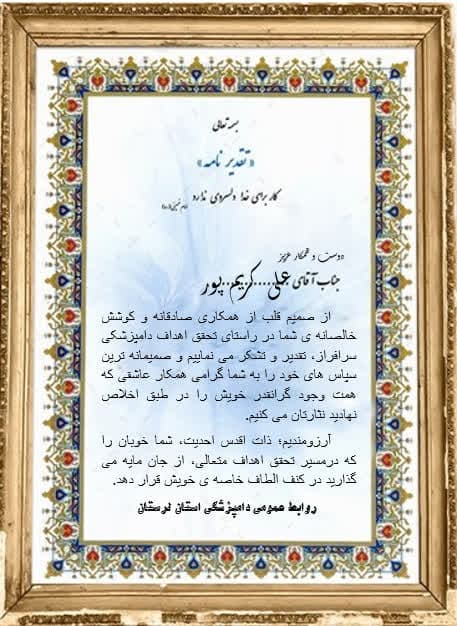 بسمه تعالی
«تقدیر نامه»
کار برای خدا دلسردی ندارد
امام خمینی (ره)
دوست و همکار عزیز
جناب آقای علی....کریم..پور
از صمیم قلب از همکاری صادقانه و کوشش
خالصانه ی شما در راستای تحقق اهداف دامپزشکی
سرافراز، تقدیر و تشکر می نماییم و صمیمانه ترین
سپاس های خود را به شما گرامی همکار عاشقی که
همت وجود گرانقدر خویش را در طبق اخلاص
نهادید نثارتان می کنیم.
آرزومندیم؛ ذات اقدس احدیت، شما خوبان را
که درمسیر تحقق اهداف متعالی، از جان مایه می
گذارید در کنف الطاف خاصه ی خویش قرار دهد.
روابط عمومی دامپزشکی استان لرستان